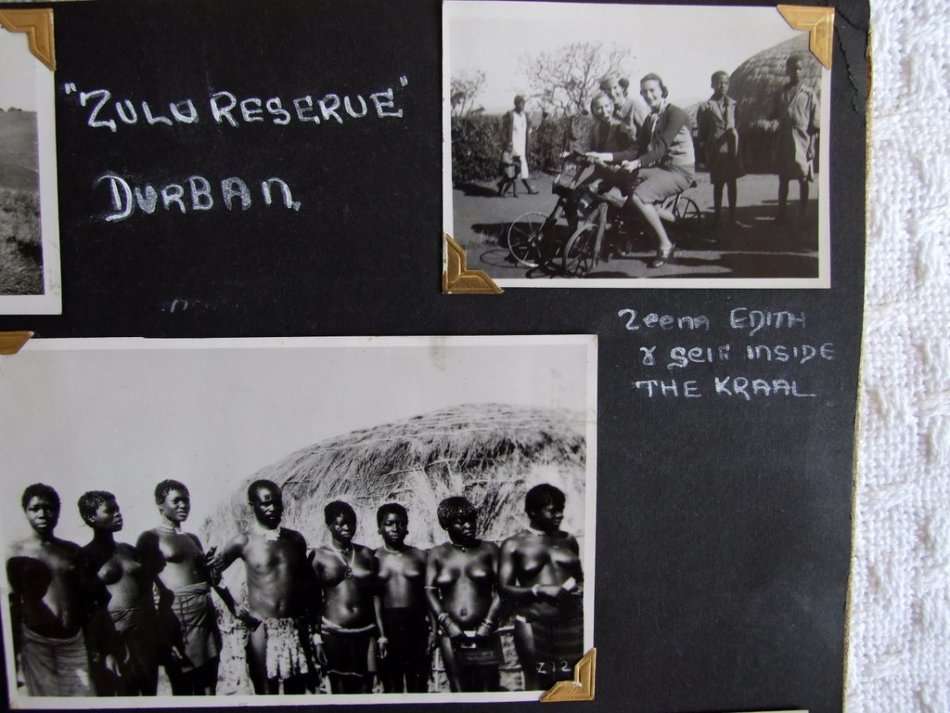 "ZULU RESERVE"
DURBAN.
Zeena EDITH
& Self INSIDE
THE KRAAL
Z 12